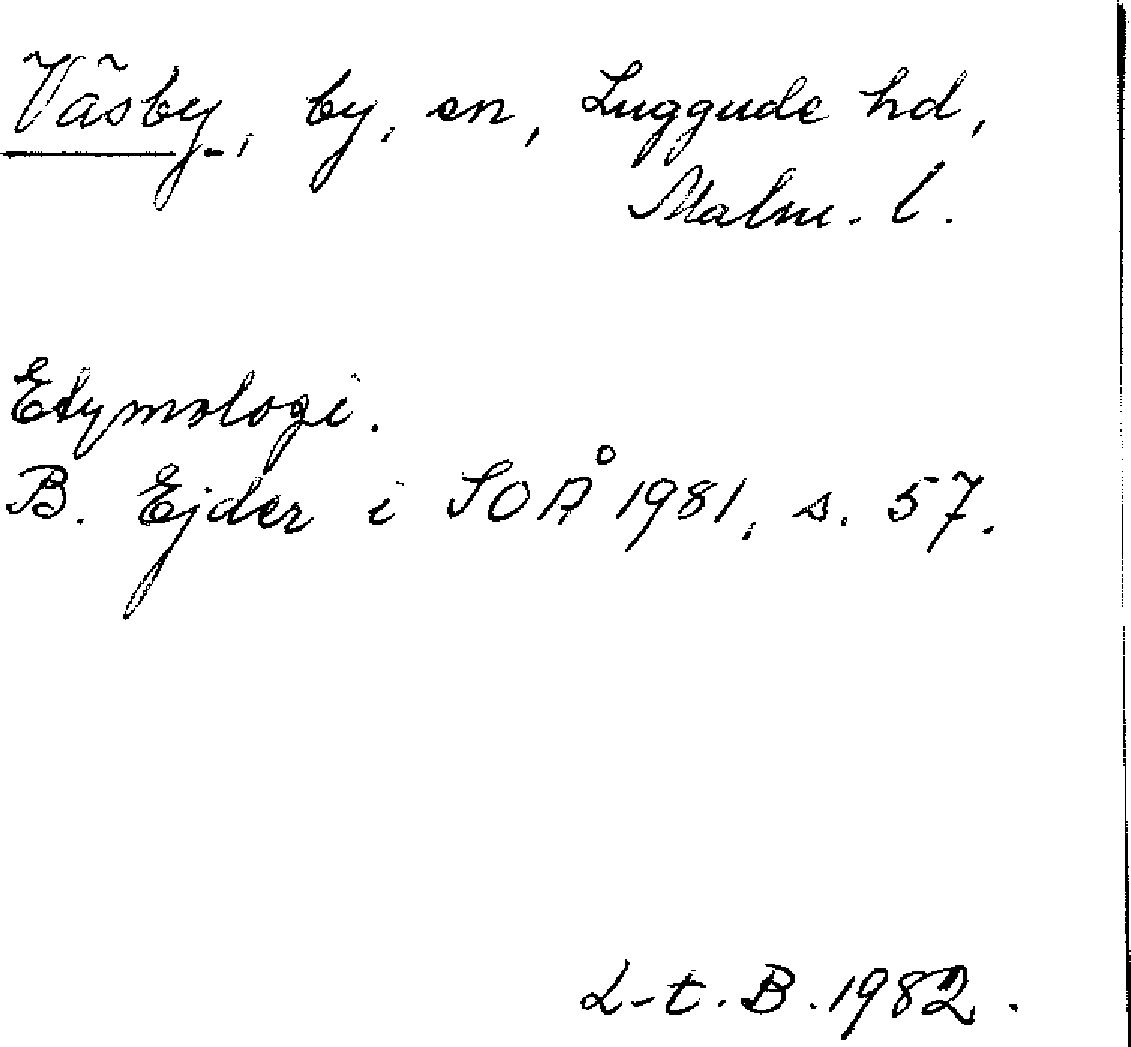 Väsby, by, sn, Luggude hd,
Malm. l.
Etymologi.
B. Ejder i SOÅ 1981, s. 57.
L-t. B. 1982.